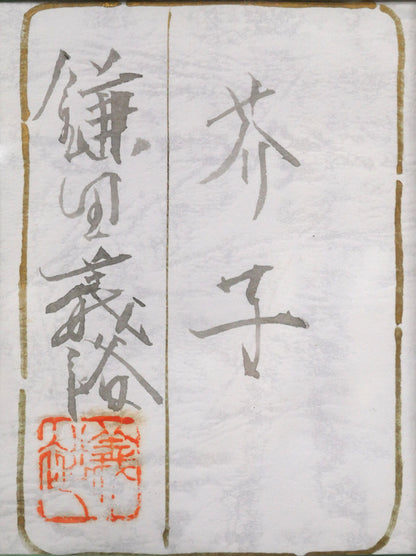 芥子
鎌田義裕